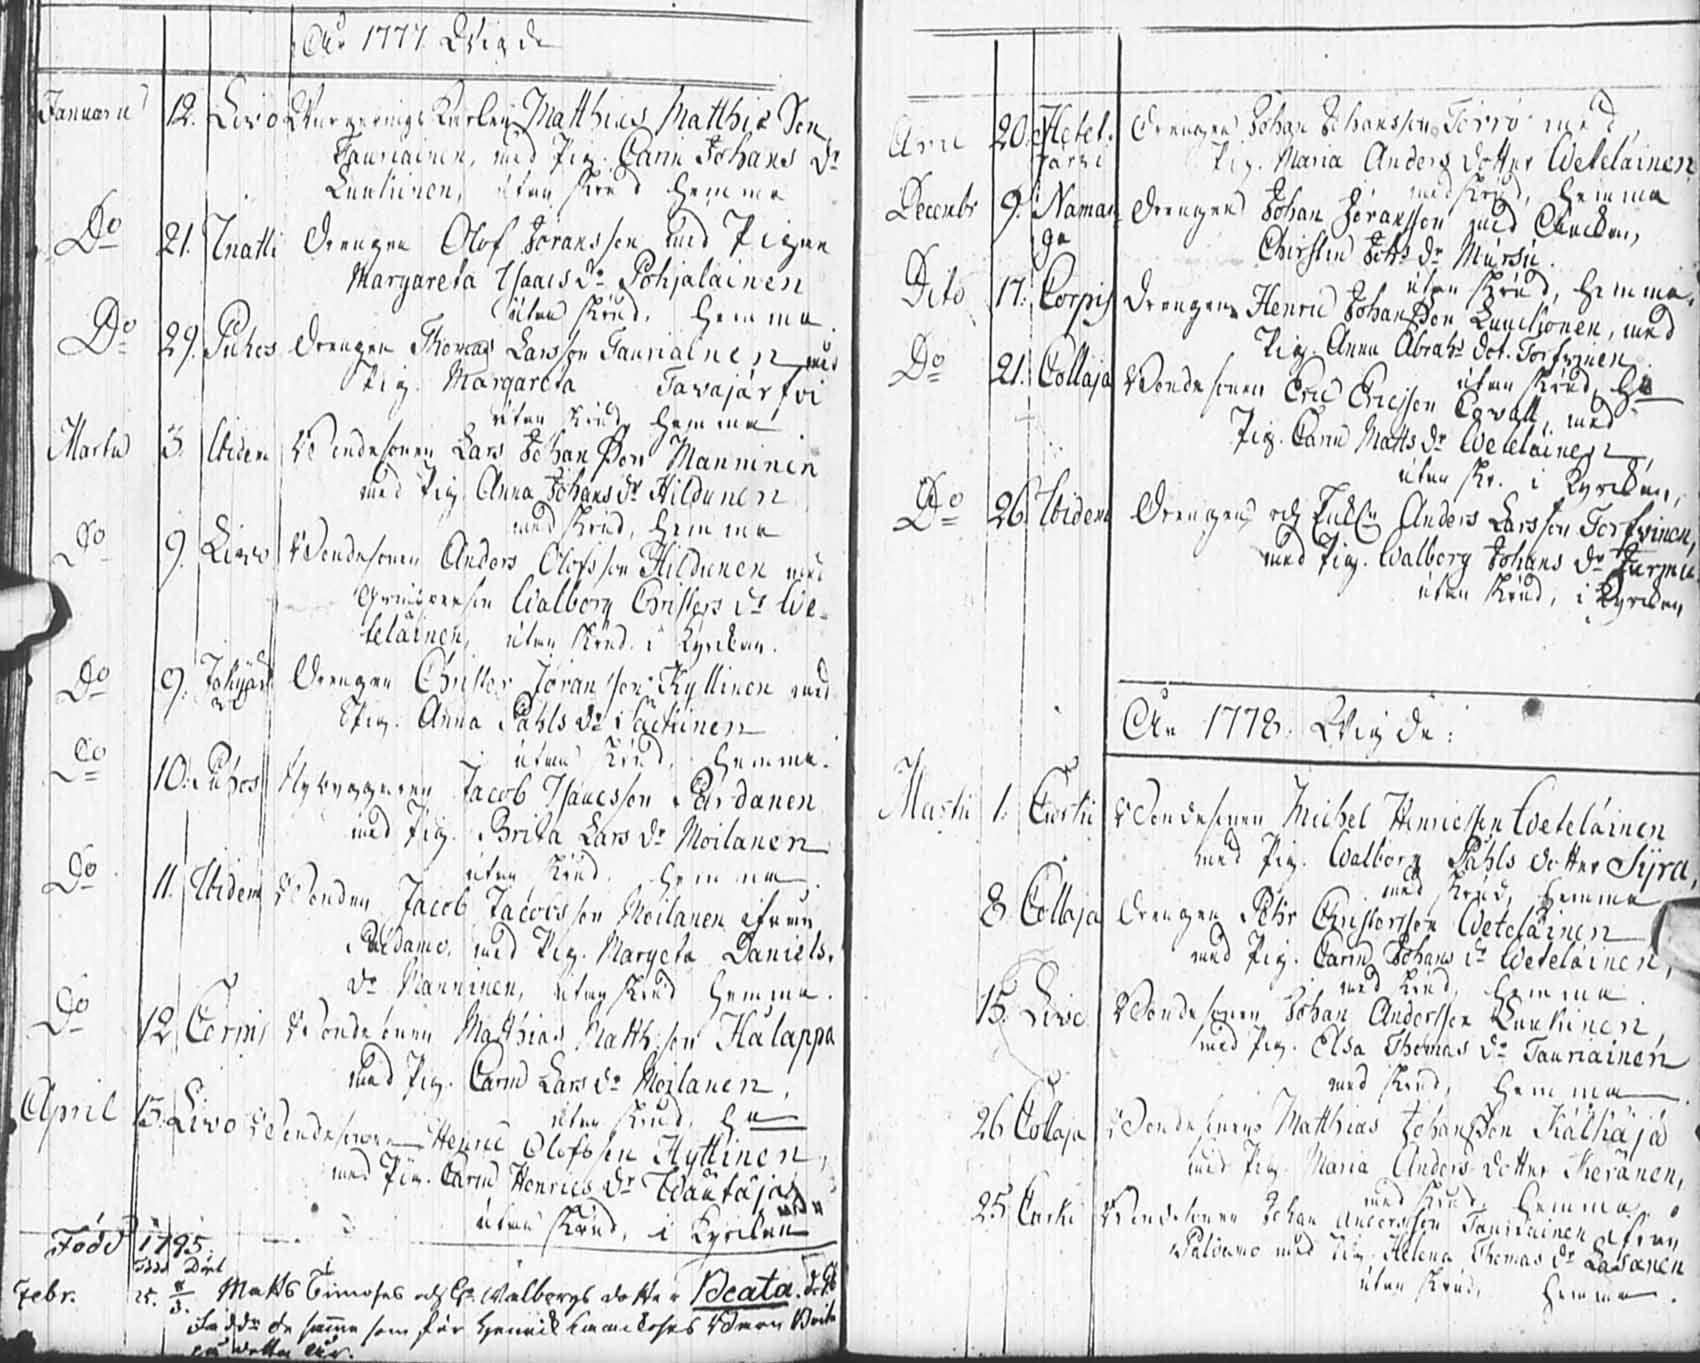 Åhr 1777. Wigde
Januarii 12. Livo Matthias Matthiæ Son
Tauriainen, med Pig. Carin Johans Dr
Luukinen, utan Krud hemma
Do 21. Drengen Olof Joransson med Pigan
Margareta Isaacs Dr Pohjalainen
utan Krud, hemma.
Do 29. Puhos Drengen Thomas Larsson Tauriainen med
Pig. Margareta Tavajärfvi
utan Krud, hemma
Martii 3. Ibidem Bondesonen Lars Johan Son Manninen
med Pig. Anna Johans Dr Hildunen
med Krud, hemma
Do 9. Livo Bondesonen Anders Olofsson Hildunen med
Walborg Christers Dr We-
teläinen, utan Krud, i Kyrckan.
Do 9. Drengen Christer Joransson Kyllinen med
Pig. Anna Påhls Dr
utan Krud, hemma.
Do 10. Puhos Nybyggaren Jacob Isaacsson Pardanen
med Pig. Brita Lars Dr Moilanen
utan Krud, hemma.
Do 11. Ibidem Bonden Jacob Jacobsson Moilanen ifrån
Paldamo, med Pig. Margeta Daniels
Dr Manninen, utan Krud hemma.
Do 12 Bondesonen Matthias Matthsson Halappa
med Pig. Carin Lars Dr Moilanen,
utan Krud, he
April 15. Livo Bondesonen Henric Olofsson Hyttinen,
med Pig. Carin Henrics Dr
utan Krud, i Kyrckan
Född 1795.
Född Döpt
Febr. 25. Matts Timoses och H. Walborgs dotter Beata.
Faddr de samma som för Henrik
på detta
April 20. Hetel-
järvi Drengen Johan Johansson Törrö med
Pig. Maria Anders Dotter Weteläinen
med Krud, hemma
Decembr 9. Naman-
ga Drengen Johan Joransson med Enckan,
Chirstin Matts Dr Mursu.
utan Krud, hemma.
Dito 17. Corpis Drengen Henric Johansson Luuckonen, med
Pig. Anna Abrahs Dot. Torfvinen
utan Krud, he
Do 21. Collaja Bondesonen Eric Ericsson Corvall, med
Pig. Carin Matts Dr Weteläinen,
utan Kr. i Kyrckan,
Do 26. Ibidem Drengen och Anders Larsson Torfvinen,
med Pig. Walborg Johans Dr
utan Krud, i Kyrckan
År 1778. Wigde:
Martii 1. Curki Bondesonen Michel Henricsson Weteläinen
med Pig. Walborg Påhls dotter Syrä,
med Krud, hemma
8. Collaja Drengen Petr Christersson Weteläinen
med Pig. Carin Johans Dr Weteläinen,
med Krud, hemma.
15. Livo Bondesonen Johan Andersson Luukinen,
med Pig. Elsa Thomas Dr Tauriainen
med Krud, hemma.
26. Collaja Bondesonen Matthias Johansson Kälkäjä
med Pig. Maria Anders dotter Keränen,
med Krud, hemma.
25. Curki Bondesonen Johan Andersson Tauriainen ifrån
Paldamo med Pig. Helena Thomas Dr Lasanen
utan Krud, hemma.